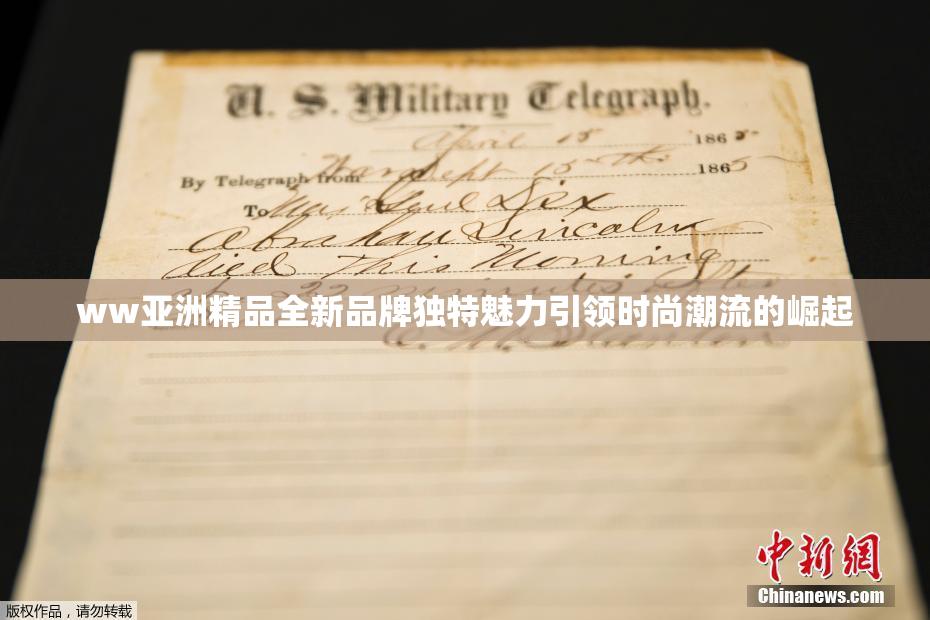 U. S. Military Telegraph.
April 15 1865
By Telegraph from War Dept 15th 1865
To Maj Genl Dix
Abraham Lincoln
died This Morning
at 22 minutes after
ww亚洲精品全新品牌独特魅力引领时尚潮流的崛起
E. M. Stanton
中新网
Chinanews.com
版权作品，请勿转载